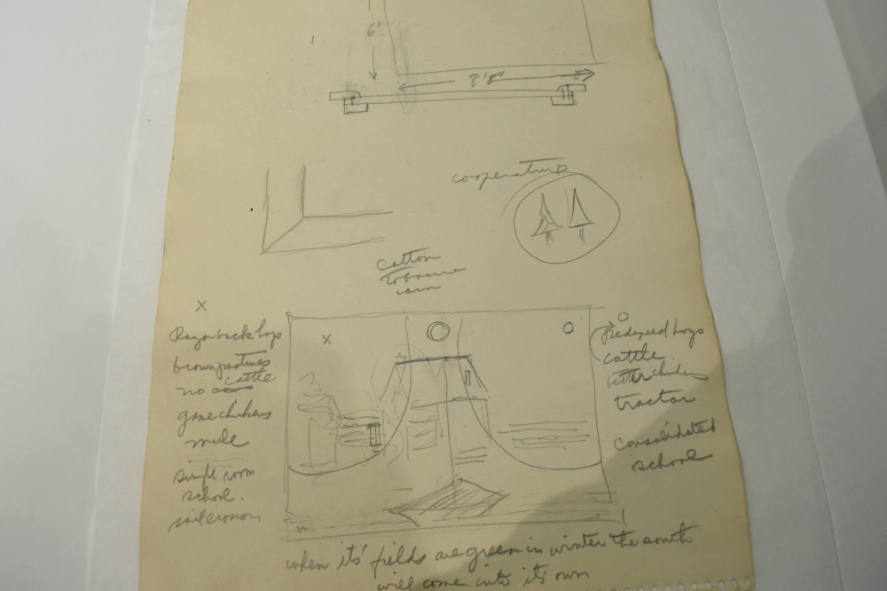 6'
8'8"
cooperative
cotton
tobacco
corn
x
Razorback hogs
brown pastures
no cattle
game chickens
mule
single room
school.
soil erosion
x
Pedigreed hogs
cattle.
better chickens
tractor
Consolidated
school
when its' fields are green in winter the south
will come into its own